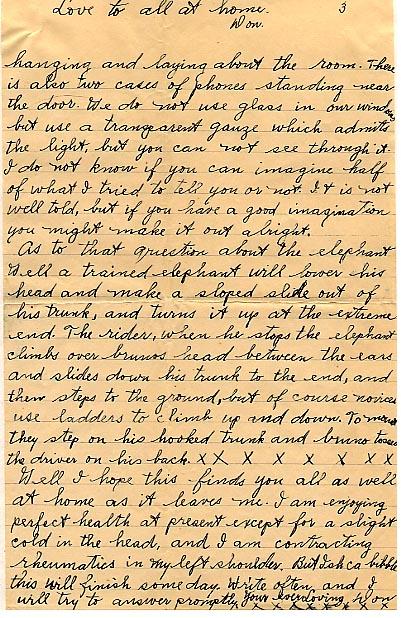 Love to all at home. 3
Don.
hanging and laying about the room. There
is also two cases of phones standing near
the door. We do not use glass in our windows
but use a transparent gauze which admits
the light, but you can not see through it.
I do not know if you can imagine half
of what I tried to tell you or not. It is not
well told, but if you have a good imagination
you might make it out alright.
As to that question about the elephant
Well a trained elephant will lower his
head and make a sloped slide out of
his trunk, and turns it up at the extreme
end. The rider, when he stops the elephant
climbs over brunos head between the ears
and slides down his trunk to the end, and
then steps to the ground, but of course novices
use ladders to climb up and down. To mount
they step on his hooked trunk and bruno tosses
the driver on his back. X X X X X X X X
Well I hope this finds you all as well
at home as it leaves me. I am enjoying
perfect health at present except for a slight
cold in the head, and I am contracting
rheumatics in my left shoulder. But Ish ca bibble
this will finish some day. Write often, and I
will try to answer promptly. Your loving Don
X X X X X X X X